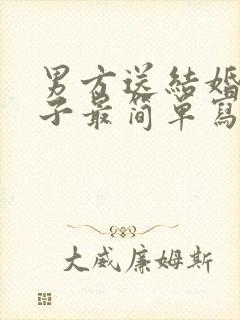 男方送結婚
子最简单寫
大威廉姆斯